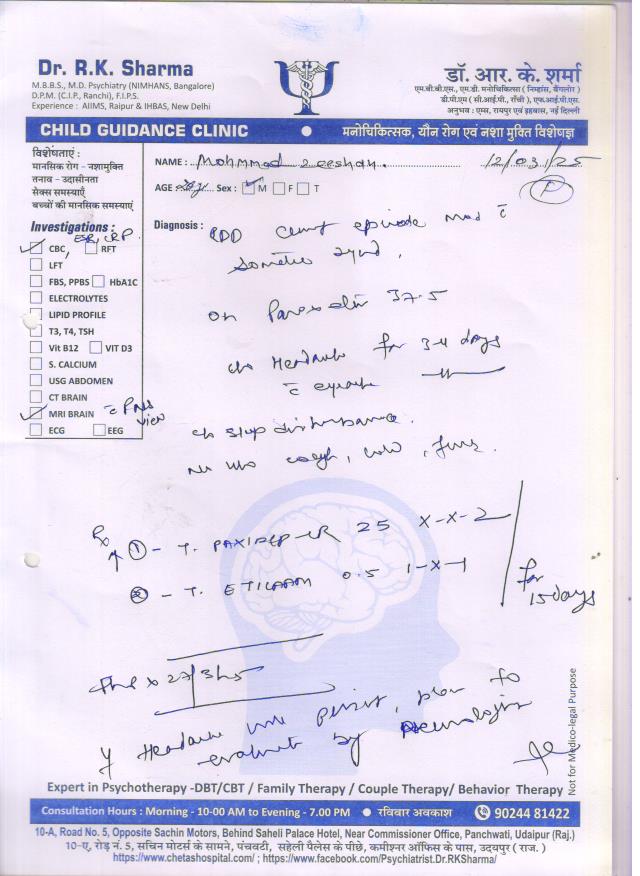 Dr. R.K. Sharma
M.B.B.S., M.D. Psychiatry (NIMHANS, Bangalore)
D.P.M. (C.I.P., Ranchi), F.I.P.S.
Experience : AIIMS, Raipur & IHBAS, New Delhi
डॉ. आर. के. शर्मा
एम.बी.बी.एस., एम.डी. मनोचिकित्सा ( निम्हांस, बैंगलोर )
डी.पी.एम ( सी.आई.पी., राँची ), एफ.आई.पी.एस.
अनुभव : एम्स, रायपुर एवं इहबास, नई दिल्ली
CHILD GUIDANCE CLINIC • मनोचिकित्सक, यौन रोग एवं नशा मुक्ति विशेषज्ञ
विशेषताएं :
मानसिक रोग - नशामुक्ति
तनाव - उदासीनता
सेक्स समस्याएँ
बच्चों की मानसिक समस्याएं
NAME : Mohmmad Zeeshan
12/03/25
AGE Sex : M F T
Investigations :
ESR, CRP
CBC, RFT
LFT
FBS, PPBS HbA1C
ELECTROLYTES
LIPID PROFILE
T3, T4, TSH
Vit B12 VIT D3
S. CALCIUM
USG ABDOMEN
CT BRAIN
MRI BRAIN c̄ PNS view
ECG EEG
Diagnosis : RDD episode mod c̄
somatic synd.
on 37.5
c/o Headache for 3-4 days
c̄
c/o sleep disturbance.
No h/o cough, cold, fever.
Rx
↑ ① - T. PAXIDEP-CR 25 X-X-2
② - T. ETILAAM 0.5 1-X-1
for 15 days
27/3/25
If Headache persist, plan to
evaluate by Neurologist
Not for Medico-legal Purpose
Expert in Psychotherapy -DBT/CBT / Family Therapy / Couple Therapy/ Behavior Therapy
Consultation Hours : Morning - 10-00 AM to Evening - 7.00 PM • रविवार अवकाश 90244 81422
10-A, Road No. 5, Opposite Sachin Motors, Behind Saheli Palace Hotel, Near Commissioner Office, Panchwati, Udaipur (Raj.)
10-ए, रोड़ नं. 5, सचिन मोटर्स के सामने, पंचवटी, सहेली पैलेस के पीछे, कमीश्नर ऑफिस के पास, उदयपुर ( राज. )
https://www.chetashospital.com/ ; https://www.facebook.com/Psychiatrist.Dr.RKSharma/